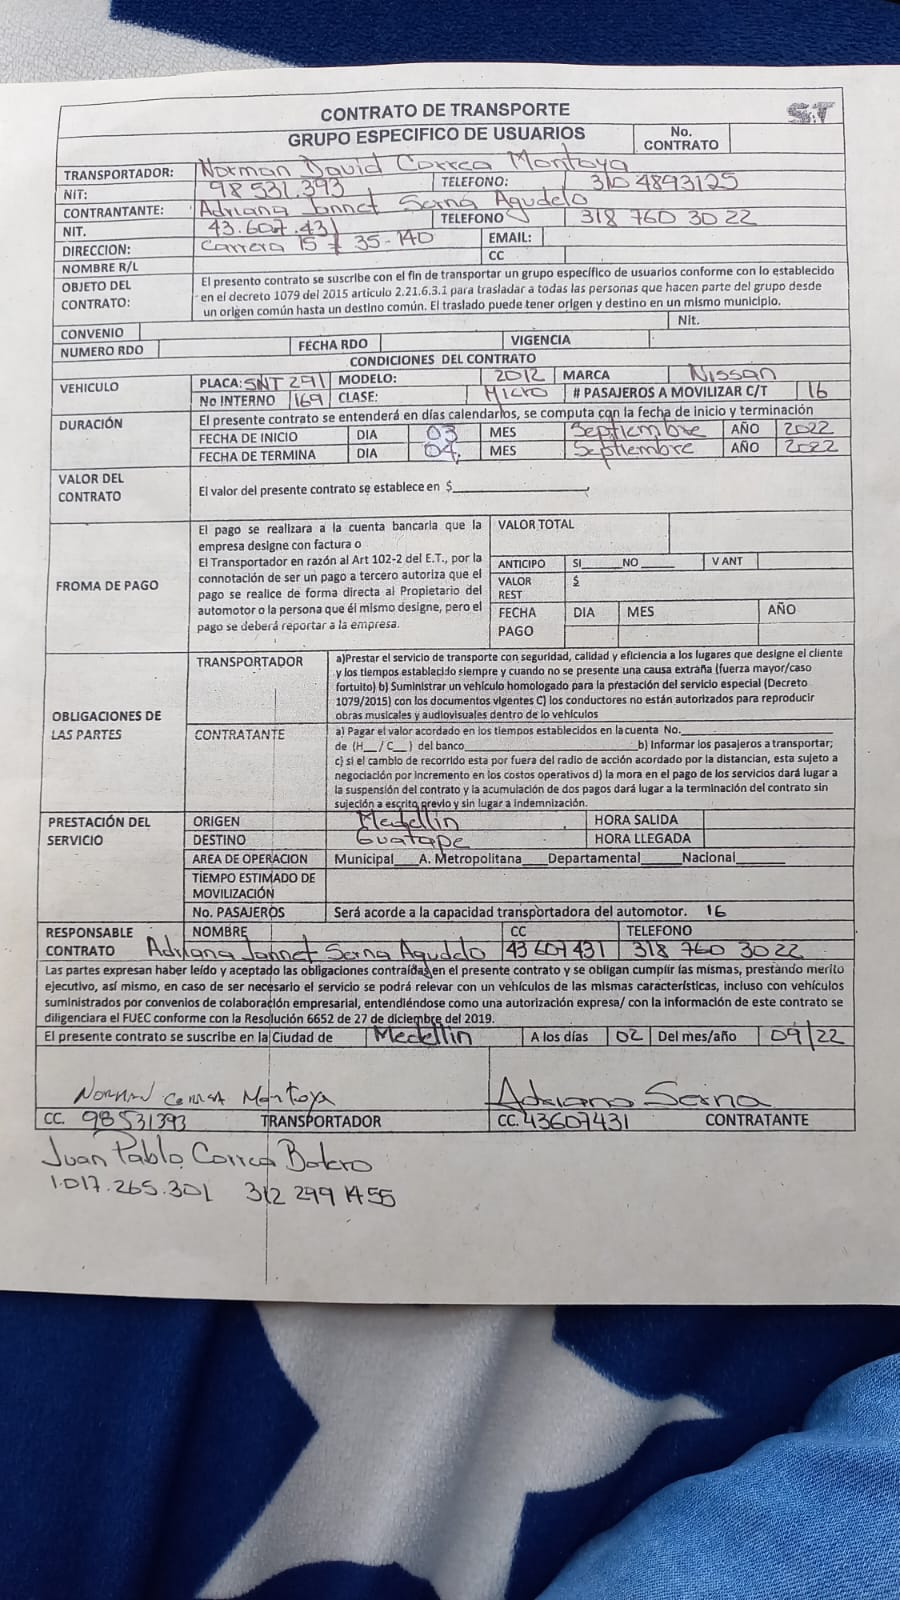 CONTRATO DE TRANSPORTE
S&T
GRUPO ESPECIFICO DE USUARIOS
No. CONTRATO
TRANSPORTADOR: Norman David Correa Montoya
NIT: 98 531.393 TELEFONO: 310 4893125
CONTRANTANTE: Adriana Jannet Serna Agudelo
NIT. 43.607.431 TELEFONO 318 760 30 22
DIRECCION: Carrera 15 # 35-140 EMAIL:
NOMBRE R/L CC
OBJETO DEL CONTRATO:
El presente contrato se suscribe con el fin de transportar un grupo específico de usuarios conforme con lo establecido
en el decreto 1079 del 2015 articulo 2.21.6.3.1 para trasladar a todas las personas que hacen parte del grupo desde
un origen común hasta un destino común. El traslado puede tener origen y destino en un mismo municipio.
CONVENIO Nit.
NUMERO RDO FECHA RDO VIGENCIA
CONDICIONES DEL CONTRATO
VEHICULO PLACA: SNT 291 MODELO: 2012 MARCA Nissan
No INTERNO 169 CLASE: Micro # PASAJEROS A MOVILIZAR C/T 16
DURACIÓN El presente contrato se entenderá en días calendarios, se computa con la fecha de inicio y terminación
FECHA DE INICIO DIA 03 MES Septiembre AÑO 2022
FECHA DE TERMINA DIA 04 MES Septiembre AÑO 2022
VALOR DEL CONTRATO El valor del presente contrato se establece en $
FROMA DE PAGO
El pago se realizara a la cuenta bancaria que la
empresa designe con factura o
El Transportador en razón al Art 102-2 del E.T., por la
connotación de ser un pago a tercero autoriza que el
pago se realice de forma directa al Propietario del
automotor o la persona que él mismo designe, pero el
pago se deberá reportar a la empresa.
VALOR TOTAL
ANTICIPO SI______NO______ V ANT
VALOR REST $
FECHA PAGO DIA MES AÑO
OBLIGACIONES DE LAS PARTES
TRANSPORTADOR
a)Prestar el servicio de transporte con seguridad, calidad y eficiencia a los lugares que designe el cliente
y los tiempos establecido siempre y cuando no se presente una causa extraña (fuerza mayor/caso
fortuito) b) Suministrar un vehículo homologado para la prestación del servicio especial (Decreto
1079/2015) con los documentos vigentes C) los conductores no están autorizados para reproducir
obras musicales y audiovisuales dentro de lo vehículos
CONTRATANTE
a) Pagar el valor acordado en los tiempos establecidos en la cuenta No.
de (H__/C__) del banco______ b) Informar los pasajeros a transportar;
c) si el cambio de recorrido esta por fuera del radio de acción acordado por la distancian, esta sujeto a
negociación por incremento en los costos operativos d) la mora en el pago de los servicios dará lugar a
la suspensión del contrato y la acumulación de dos pagos dará lugar a la terminación del contrato sin
sujeción a escrito previo y sin lugar a indemnización.
PRESTACIÓN DEL SERVICIO
ORIGEN Medellin HORA SALIDA
DESTINO Guatape HORA LLEGADA
AREA DE OPERACION Municipal___A. Metropolitana____Departamental______Nacional_______
TIEMPO ESTIMADO DE MOVILIZACIÓN
No. PASAJEROS Será acorde a la capacidad transportadora del automotor. 16
RESPONSABLE NOMBRE CC TELEFONO
CONTRATO Adriana Jannet Serna Agudelo 43 607 431 318 760 30 22
Las partes expresan haber leído y aceptado las obligaciones contraídas en el presente contrato y se obligan cumplir las mismas, prestando merito
ejecutivo, así mismo, en caso de ser necesario el servicio se podrá relevar con un vehículos de las mismas características, incluso con vehículos
suministrados por convenios de colaboración empresarial, entendiéndose como una autorización expresa/ con la información de este contrato se
diligenciara el FUEC conforme con la Resolución 6652 de 27 de diciembre del 2019.
El presente contrato se suscribe en la Ciudad de Medellin A los días 02 Del mes/año 09/22
Norman Correa Montoya Adriana Serna
CC. 98531393 TRANSPORTADOR CC. 43607431 CONTRATANTE
Juan Pablo Correa Botero
1.017.265.301 312 299 14 55